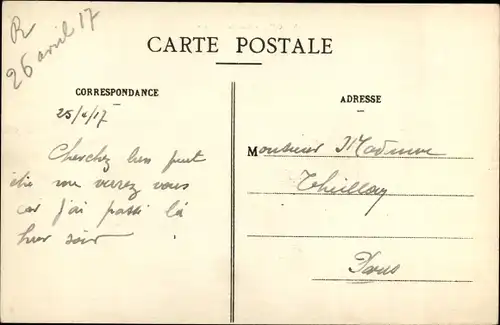 R
26 avril 17
CARTE POSTALE
CORRESPONDANCE
ADRESSE
25/4/17
Cherchez bien peut
être vous verrez vous
car j'ai passé là
hier soir
Monsieur
Paris